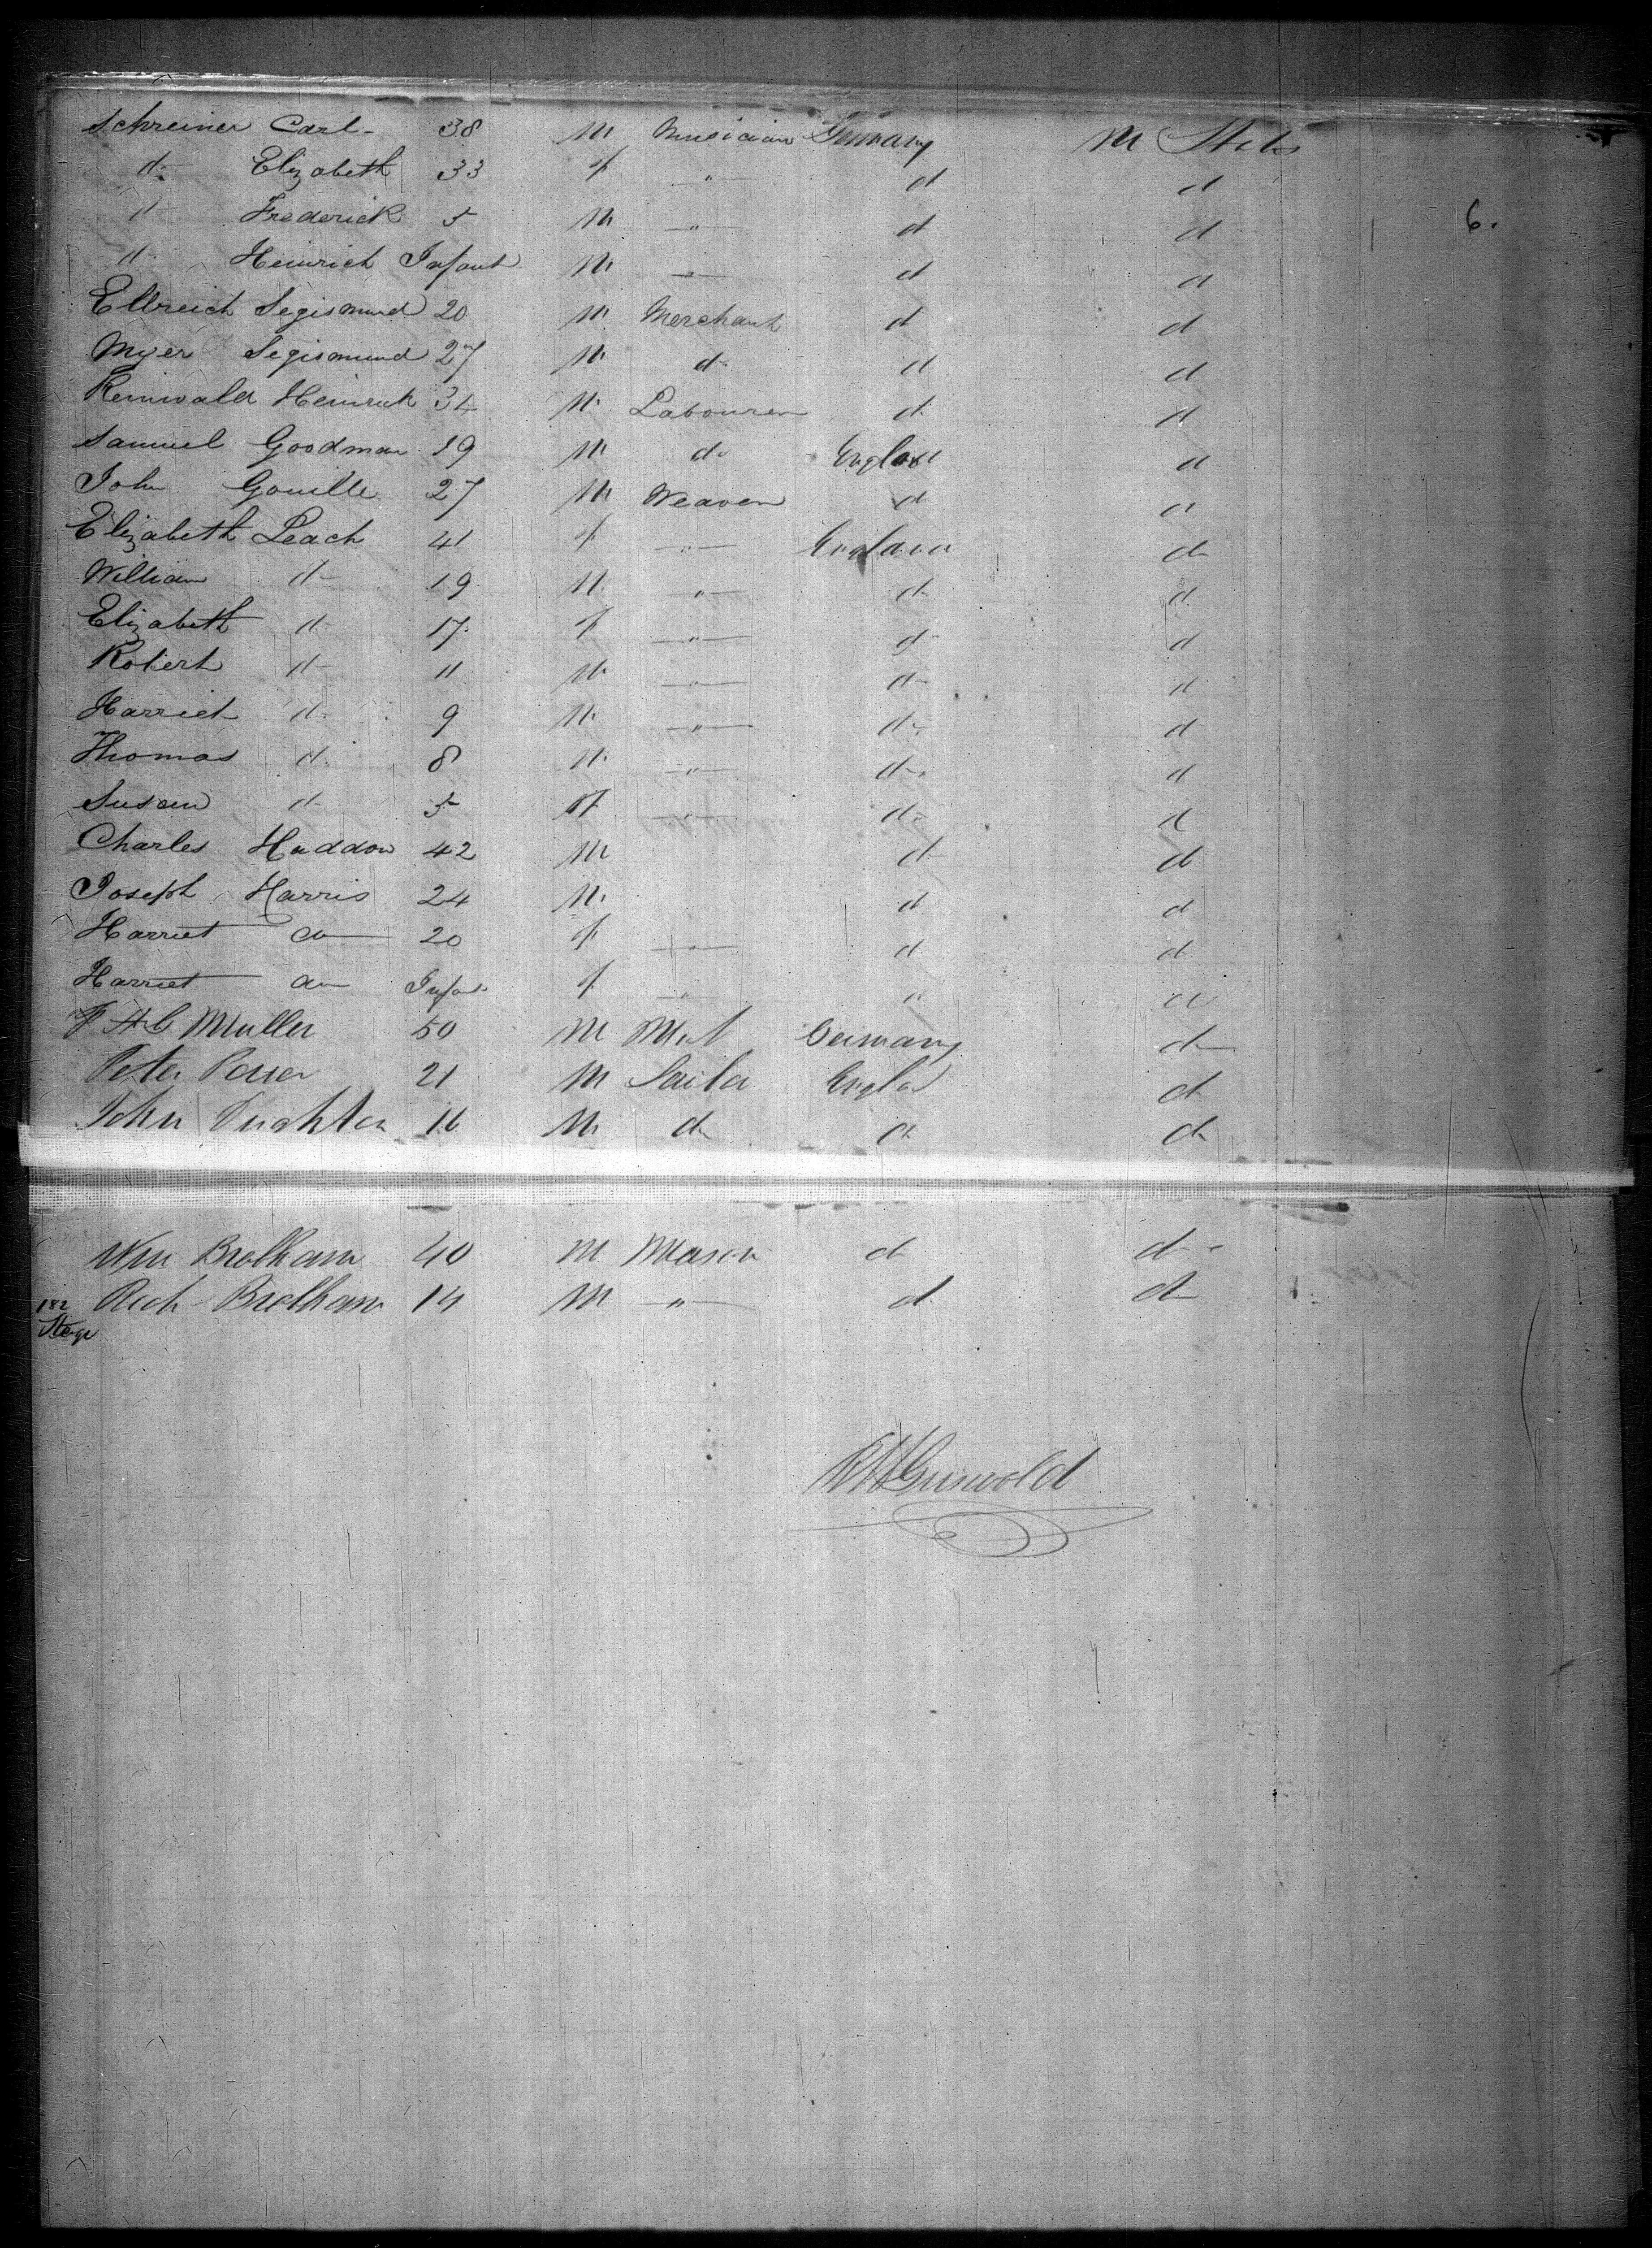 Schreiner Carl - 38 M Musician Germany M States
d- Elizabeth 33 f " d d
d Frederick 5 M " d d 6.
d- Heinrich Infant M " d d
Segismund 20 M Merchant d d
Myer Segismund 27 M d- d d
Heinrich 34 M Labourer d d
Samuel Goodman 19 M do England d
John 27 M Weaver d d
Elizabeth Leach 41 f " England d
William d- 19 M " d d
Elizabeth d- 17 f " d d
Robert d- 11 M " d- d
Harriet d- 9 M " d- d
Thomas d- 8 M " d- d
Susan d- 5 f " d- d
Charles Haddon 42 M d d
Joseph Harris 24 M d d
Harriet do 20 f " d d
Harriet do Infant f " d d
Muller 50 M Germany d
Peter 21 M Sailor England d
John 16 M do d d
Wm Brolham 40 M Mason d d-
Rich Brolham 14 M " d d
182
Stege
Griswold